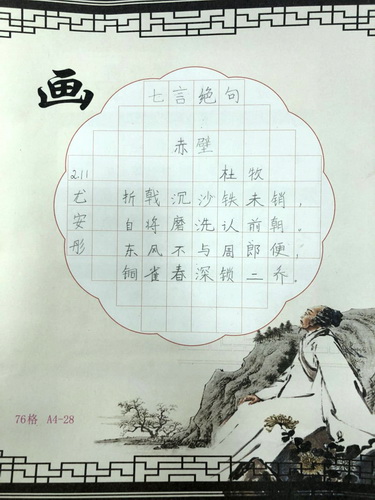 画
七言绝句
赤壁
杜牧
折戟沉沙铁未销，
自将磨洗认前朝。
东风不与周郎便，
铜雀春深锁二乔。
2.11
尤安彤
76格 A4-28